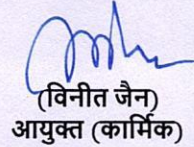 (विनीत जैन)
आयुक्त (कार्मिक)